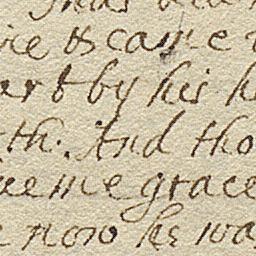 came
art by his h
th. And tho
me grace
now he wa